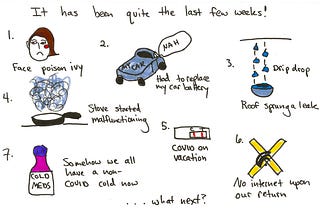 It has been quite the last few weeks!
1.
Face poison ivy
2.
MY CAR
NAH
Had to replace
my car battery
3.
Drip drop
Roof sprung a leak
4.
Stove started
malfunctioning
5.
COVID on
vacation
6.
No internet upon
our return
7.
COLD
MEDS
Somehow we all
have a non-
COVID cold now
... what next?